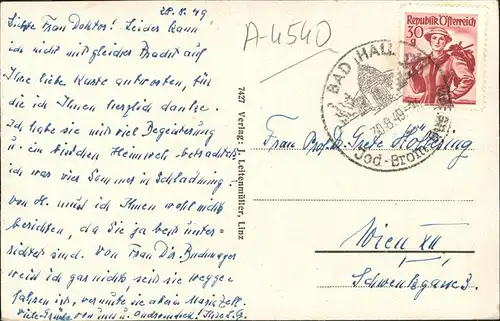 28.8.49
Liebe Frau Doktor! Leider kann
ich nicht mit gleicher Pracht auf
Ihre liebe Karte antworten, für
die ich Ihnen herzlich danke.
Ich habe sie mit viel Begeisterung
u. ein bisschen Heimweh betrachtet,
ich war vier Sommer in Schladming.
von H. muss ich Ihnen wohl nicht
berichten, da Sie ja beim unter-
richtet sind. Von Frau Dir. Buchmayer
weiß ich gar nichts, seit sie wegge-
fahren ist, vermute sie aber in Maria Zell.
Viele Grüße von uns u.
A-4540
7427 Verlag: J. Leitenmüller, Linz
Republik Österreich
30g
BAD HALL
30.8.49
Jod-Brom
Frau Prof. Dr. Grete
Wien XII
Schwenkgasse 3